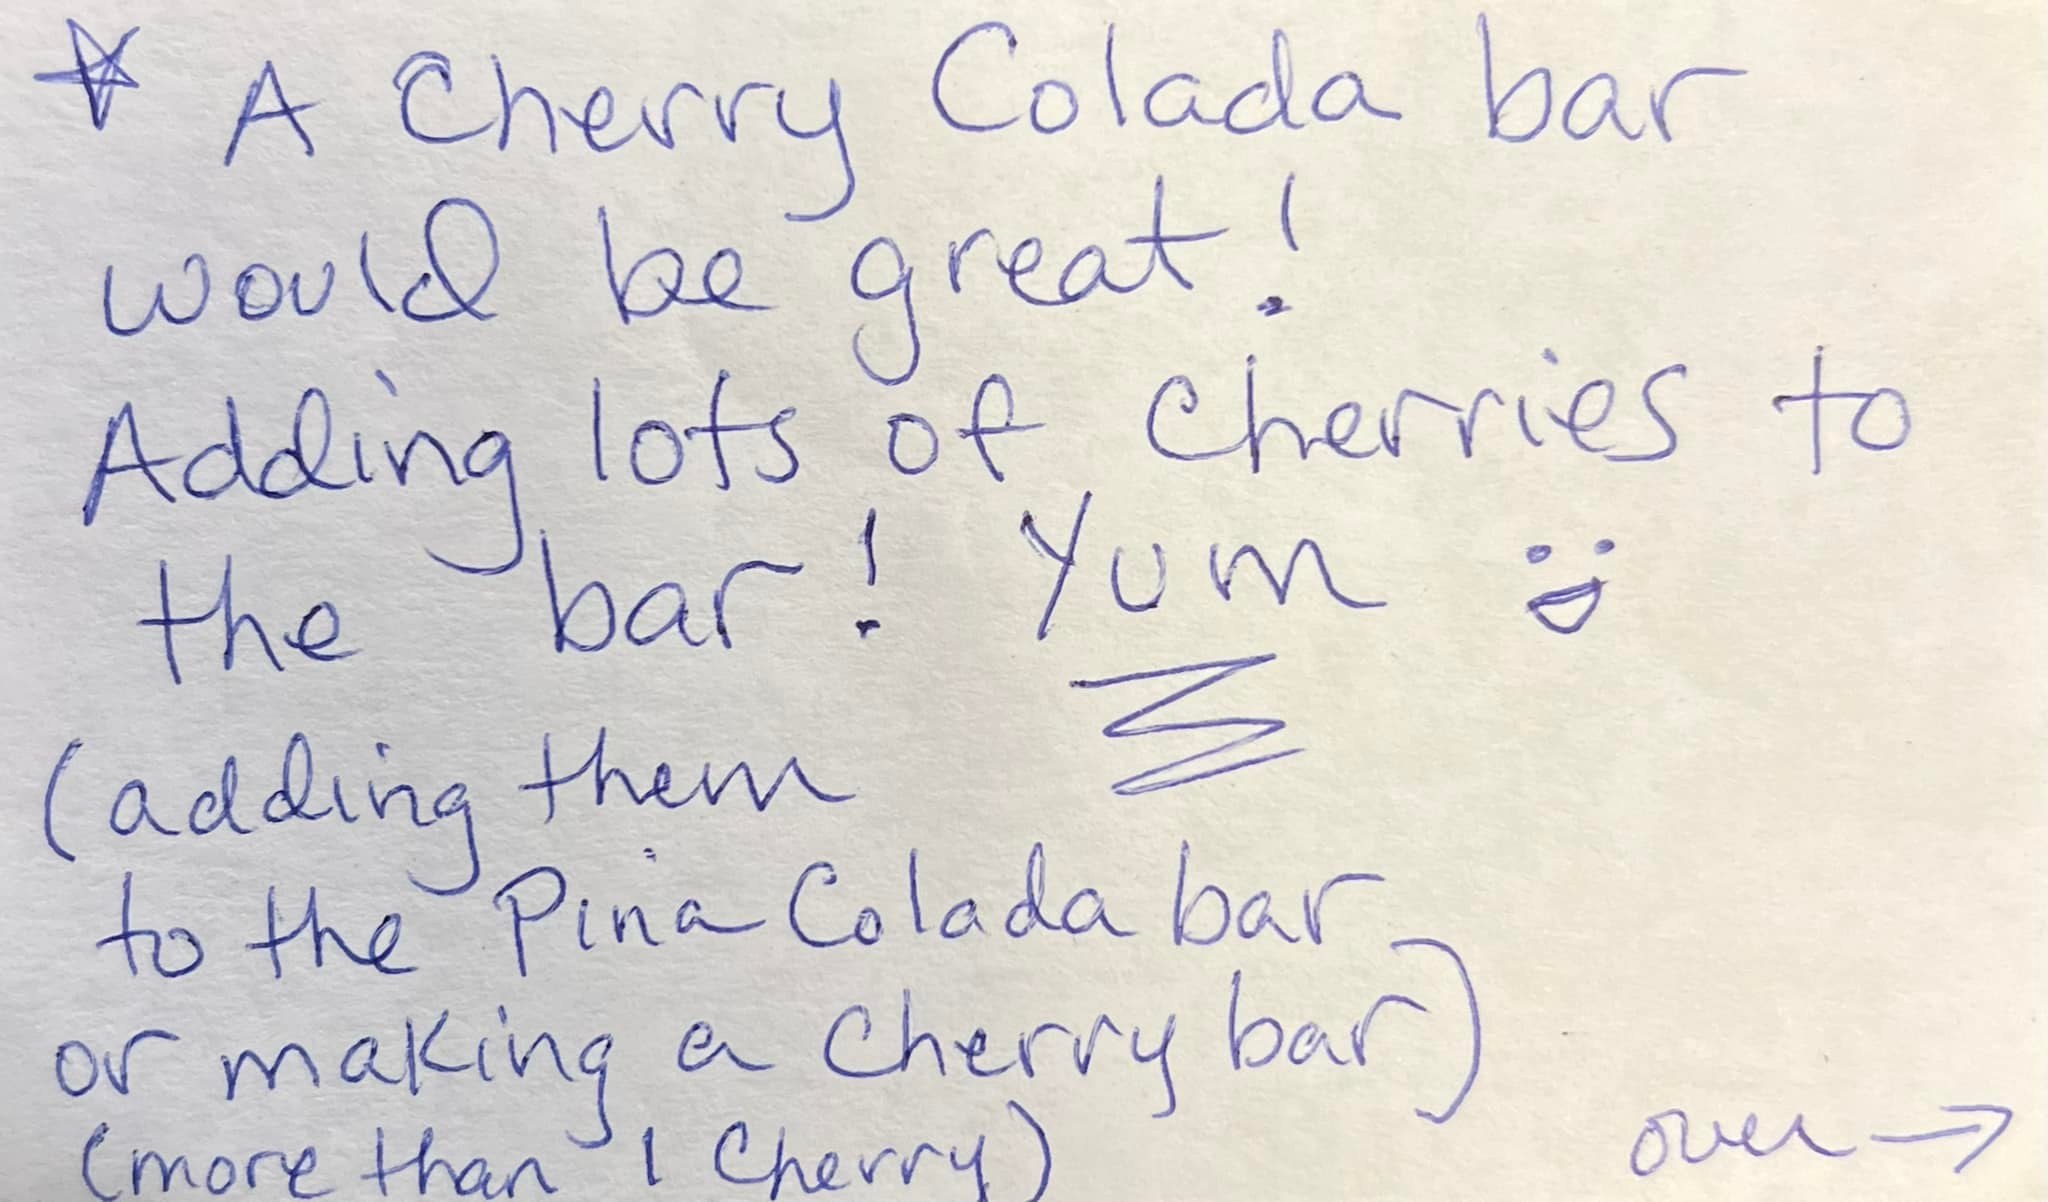 ☆ A Cherry Colada bar
would be great!
Adding lots of cherries to
the bar! Yum
(adding them
to the Pina Colada bar
or making a cherry bar)
(more than 1 Cherry)
over →